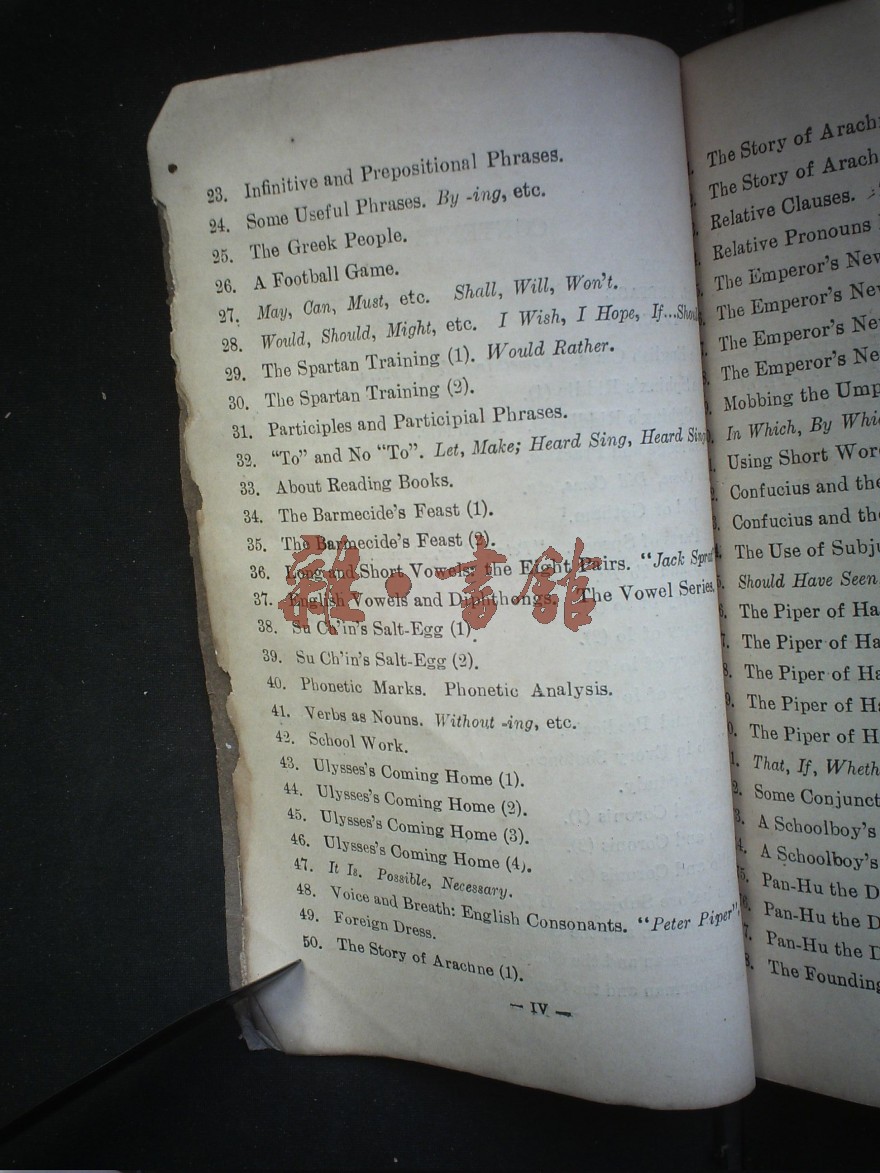 23. Infinitive and Prepositional Phrases.
24. Some Useful Phrases. By -ing, etc.
25. The Greek People.
26. A Football Game.
27. May, Can, Must, etc. Shall, Will, Won't.
28. Would, Should, Might, etc. I Wish, I Hope, If...Shoul
29. The Spartan Training (1). Would Rather.
30. The Spartan Training (2).
31. Participles and Participial Phrases.
32. "To" and No "To". Let, Make; Heard Sing, Heard Sing
33. About Reading Books.
34. The Barmecide's Feast (1).
35. The Barmecide's Feast (2).
36. Long and Short Vowels: the Eight Pairs. "Jack Sprat
37. English Vowels and Diphthongs. The Vowel Series.
38. Su Ch'in's Salt-Egg (1).
39. Su Ch'in's Salt-Egg (2).
40. Phonetic Marks. Phonetic Analysis.
41. Verbs as Nouns. Without -ing, etc.
42. School Work.
43. Ulysses's Coming Home (1).
44. Ulysses's Coming Home (2).
45. Ulysses's Coming Home (3).
46. Ulysses's Coming Home (4).
47. It Is. Possible, Necessary.
48. Voice and Breath: English Consonants. "Peter Piper".
49. Foreign Dress.
50. The Story of Arachne (1).
— IV —
The Story of Arach
The Story of Arach
Relative Clauses.
Relative Pronouns
The Emperor's New
The Emperor's Ne
The Emperor's Ne
The Emperor's Ne
Mobbing the Ump
In Which, By Whic
Using Short Wor
Confucius and the
Confucius and the
The Use of Subju
Should Have Seen
The Piper of Ha
The Piper of Ha
The Piper of Ha
The Piper of Ha
The Piper of H
That, If, Wheth
Some Conjunct
A Schoolboy's
A Schoolboy's
Pan-Hu the D
Pan-Hu the D
Pan-Hu the D
The Founding
雜·書館